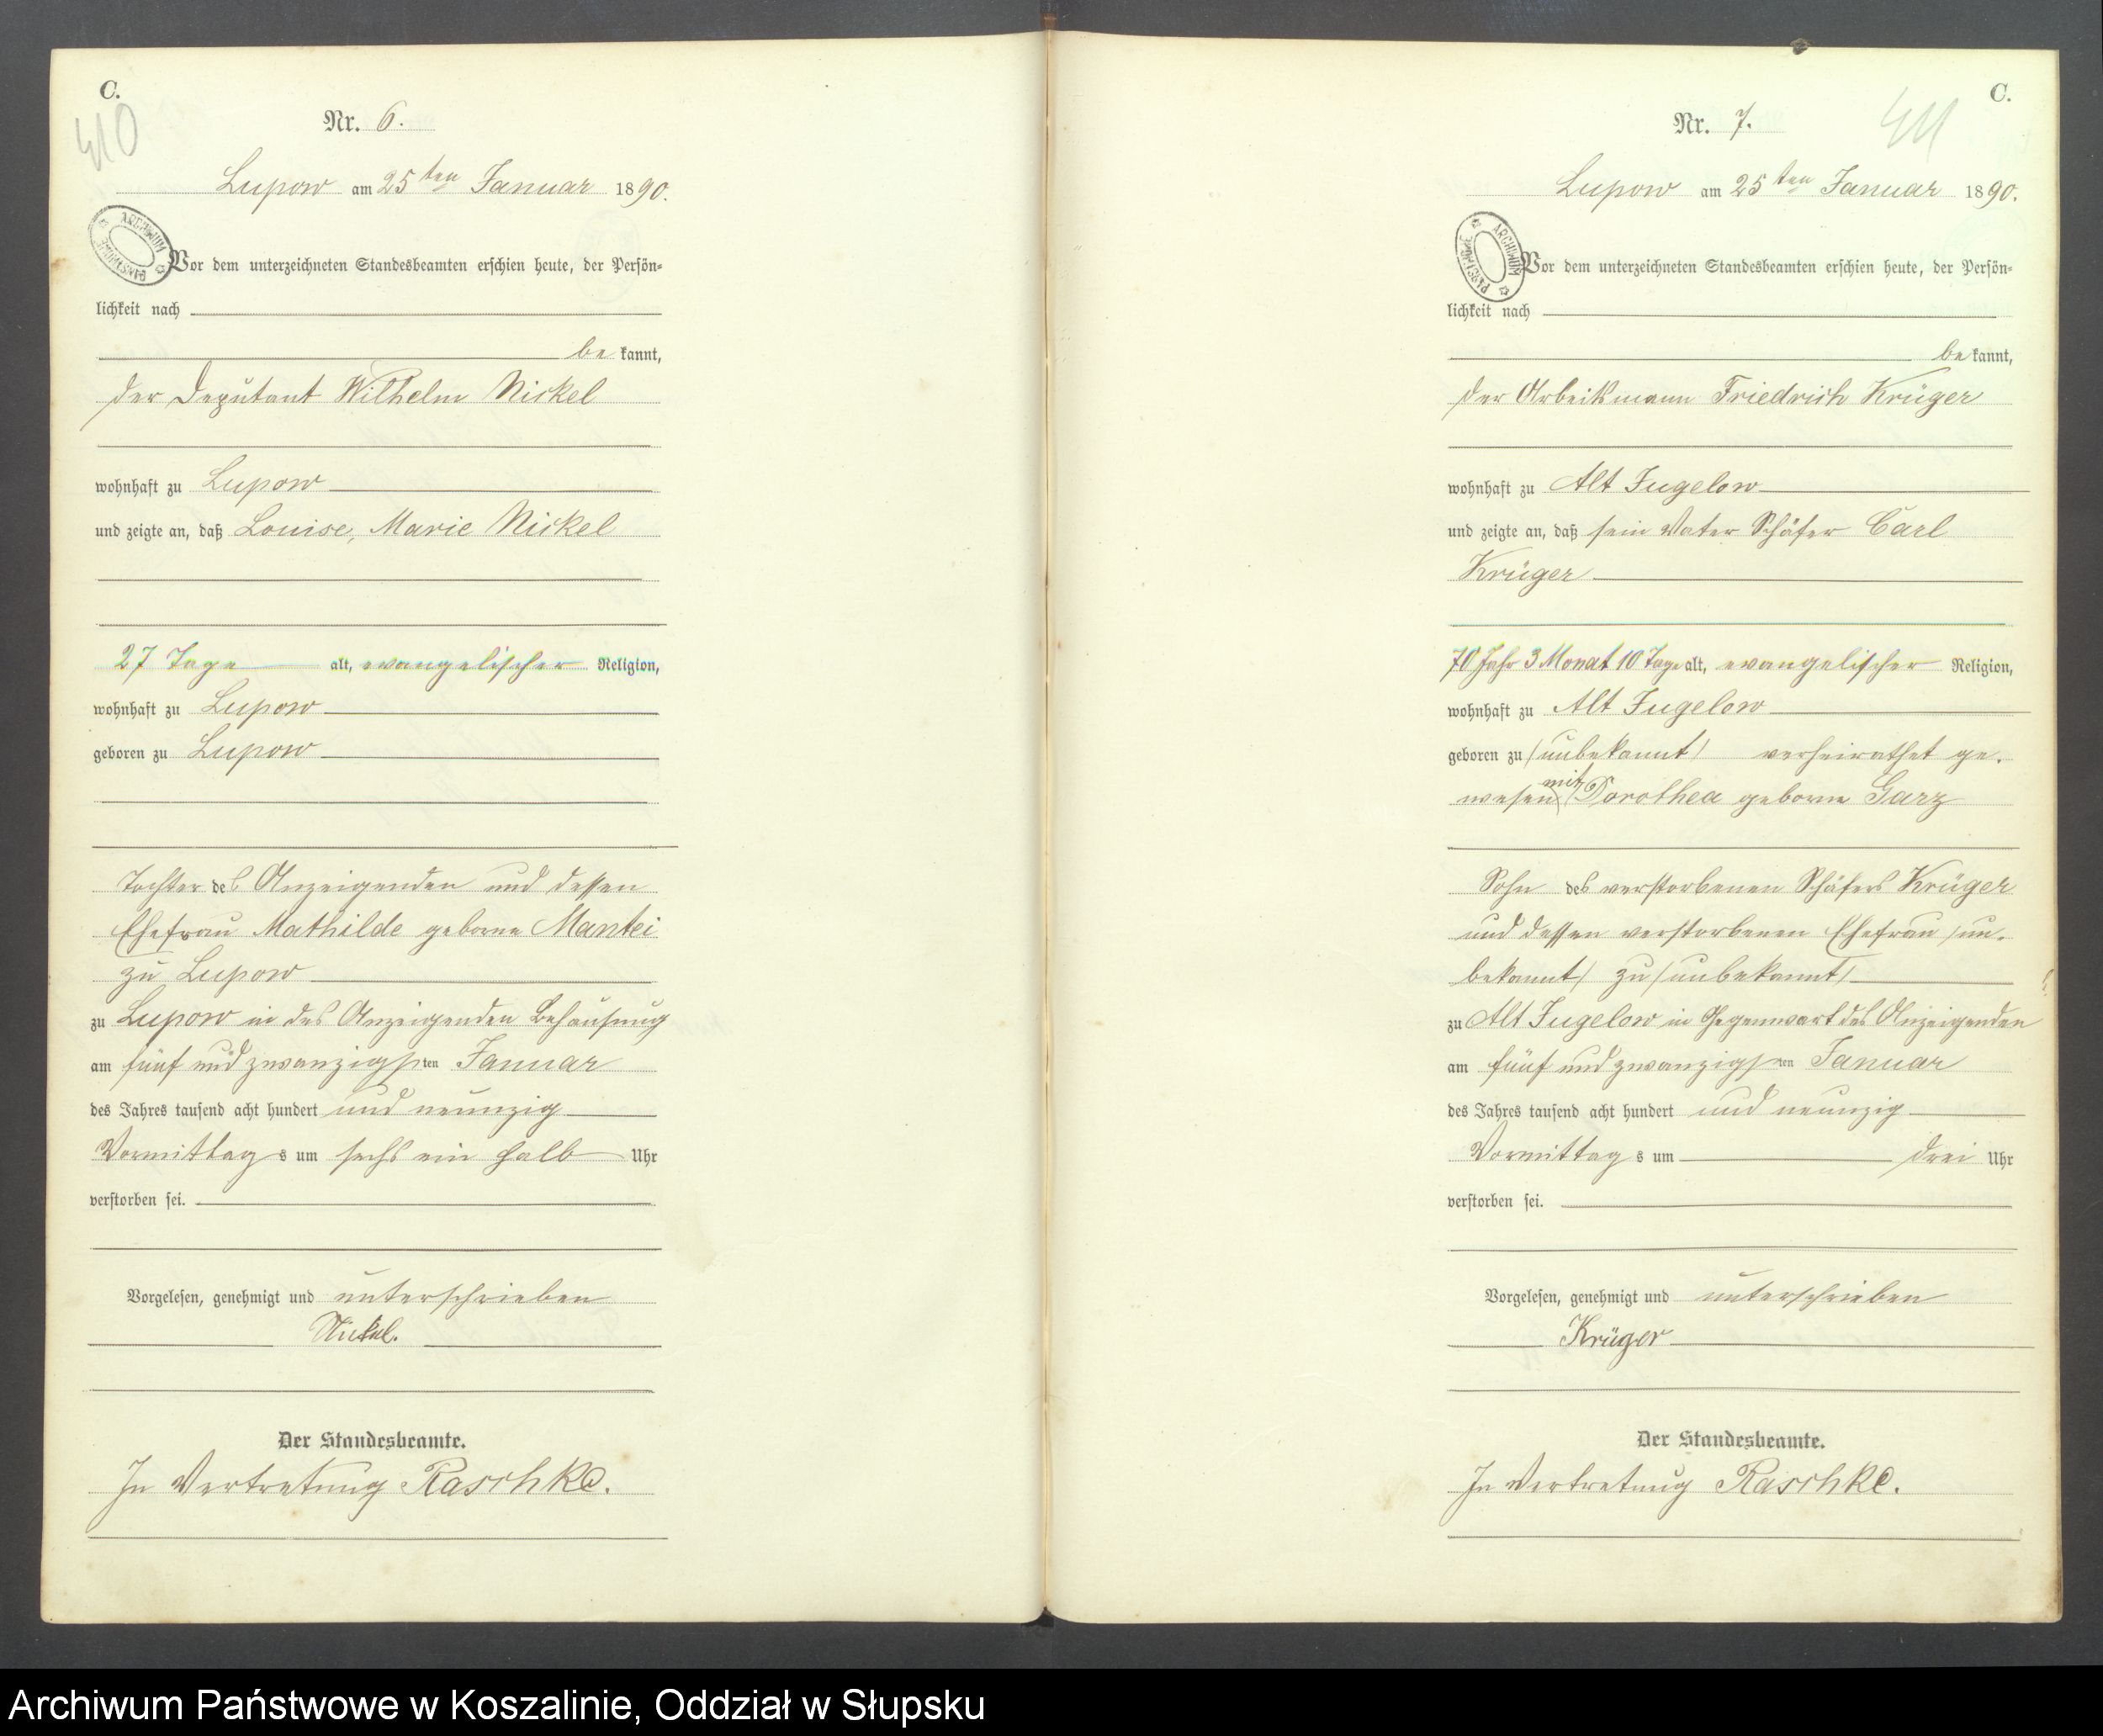 C.
410
Nr. 6.
Lupow am 25ten Januar 1890.
Vor dem unterzeichneten Standesbeamten erschien heute, der Persön-
lichkeit nach
bekannt,
der Deputant Wilhelm Nickel
wohnhaft zu Lupow
und zeigte an, daß Louise, Marie Nickel
27 Tage alt, evangelischer Religion,
wohnhaft zu Lupow
geboren zu Lupow
Tochter des Anzeigenden und dessen
Ehefrau Mathilde geborne Mantei
zu Lupow
zu Lupow in des Anzeigenden Behausung
am fünf und zwanzigsten Januar
des Jahres tausend acht hundert und neunzig
Vormittags um sechs ein halb Uhr
verstorben sei.
Vorgelesen, genehmigt und unterschrieben
Nickel.
Der Standesbeamte.
In Vertretung Raschke.
C.
411
Nr. 7.
Lupow am 25ten Januar 1890.
Vor dem unterzeichneten Standesbeamten erschien heute, der Persön-
lichkeit nach
bekannt,
der Arbeitsmann Friedrich Krüger
wohnhaft zu Alt Jugelow
und zeigte an, daß sein Vater Schäfer Carl
Krüger
70 Jahr 3 Monat 10 Tage alt, evangelischer Religion,
wohnhaft zu Alt Jugelow
geboren zu /unbekannt/ verheirathet ge-
wesen mit Dorothea geborne Garz
Sohn des verstorbenen Schäfers Krüger
und dessen verstorbenen Ehefrau /un-
bekannt/ zu /unbekannt/
zu Alt Jugelow in Gegenwart des Anzeigenden
am fünf und zwanzigsten Januar
des Jahres tausend acht hundert und neunzig
Vormittags um drei Uhr
verstorben sei.
Vorgelesen, genehmigt und unterschrieben
Krüger
Der Standesbeamte.
In Vertretung Raschke.
Archiwum Państwowe w Koszalinie, Oddział w Słupsku